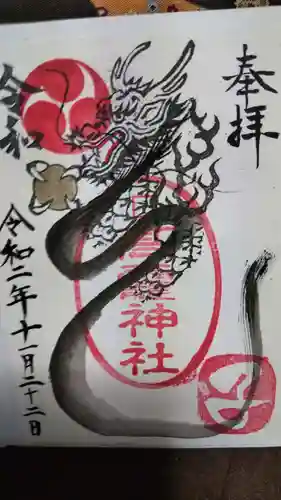 奉拝
神社
令和
令和二年十一月二十二日